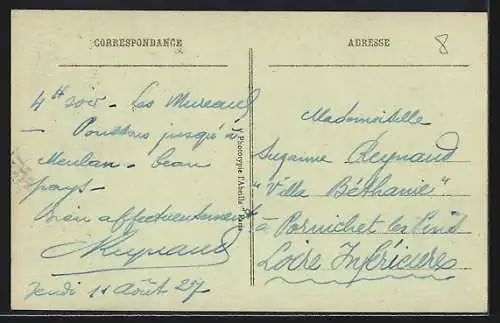 CORRESPONDANCE
ADRESSE
8
4 H soir - Les Mureaux
- Poussons jusqu'à
Meulan - beau
pays -
Bien affectueusement
Reynaud
Jeudi 11 Août 27
Phototypie l'Abeille, Paris
Mademoiselle
Suzanne Reynaud
"Villa Béthanie"
à Pornichet les Pins
Loire Inférieure